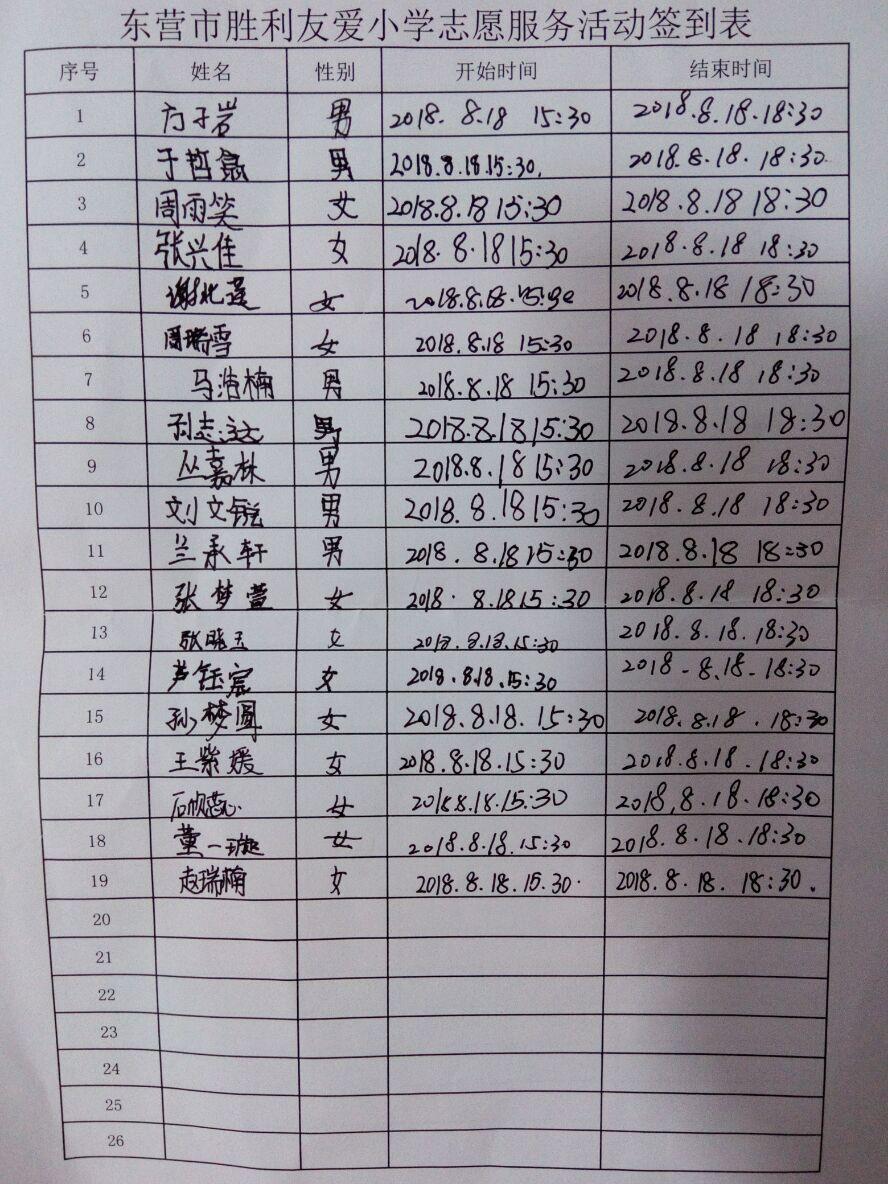 东营市胜利友爱小学志愿服务活动签到表
序号 姓名 性别 开始时间 结束时间
1 方子岩 男 2018. 8.18 15:30 2018.8.18.18:30
2 于哲 男 2018.8.18.15:30. 2018.8.18. 18:30
3 周雨笑 女 2018.8.18 15:30 2018.8.18 18:30
4 张兴佳 女 2018.8.18 15:30 2018.8.18 18:30
5 谢 女 2018.8.18.15:30 2018.8.18 18:30
6 周瑞雪 女 2018.8.18 15:30 2018.8.18 18:30
7 马浩楠 男 2018.8.18 15:30 2018.8.18 18:30
8 孙志 男 2018.8.18 15:30 2018.8.18 18:30
9 丛嘉林 男 2018.8.18 15:30 2018.8.18 18:30
10 刘文 男 2018.8.18 15:30 2018.8.18 18:30
11 兰承轩 男 2018.8.18 15:30 2018.8.18 18:30
12 张梦萱 女 2018.8.18 15:30 2018.8.18 18:30
13 张晓玉 女 2018.8.18.15:30 2018.8.18.18:30
14 芦钰宸 女 2018.8.18.15:30 2018-8.18-18:30
15 孙梦圆 女 2018.8.18. 15:30 2018.8.18.18:30
16 王紫媛 女 2018.8.18.15:30 2018.8.18.18:30
17 石欣蕊 女 2018.8.18.15:30 2018.8.18.18:30
18 董一璇 女 2018.8.18.15:30 2018.8.18.18:30
19 赵瑞楠 女 2018.8.18.15.30. 2018.8.18. 18:30.
20
21
22
23
24
25
26